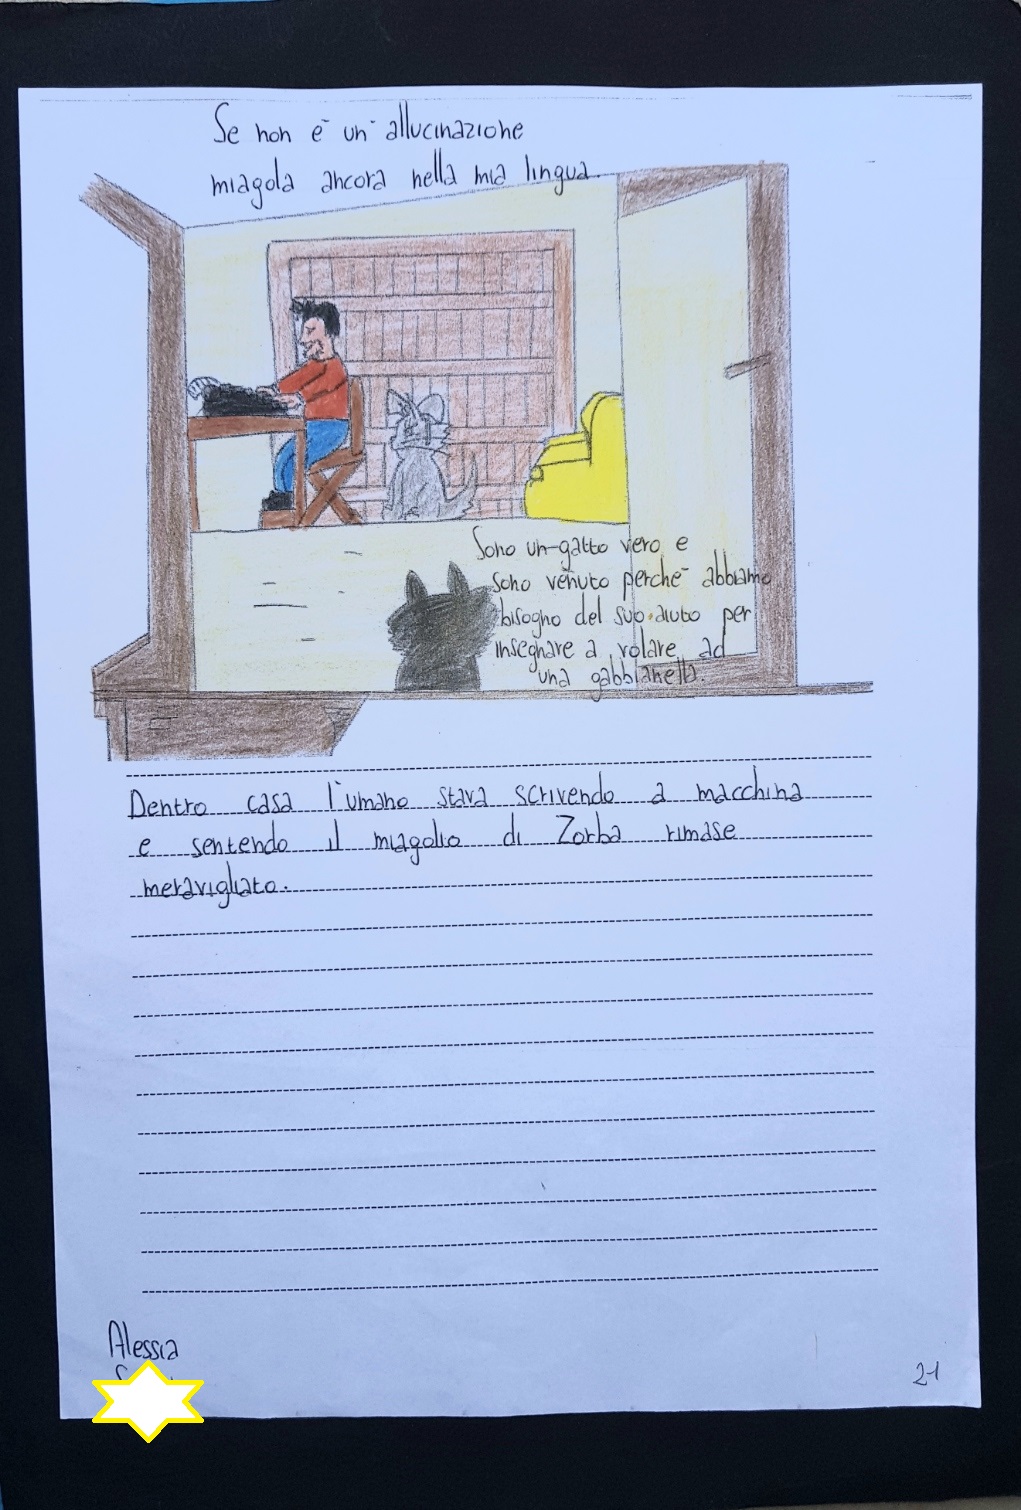 Se non è un' allucinazione
miagola ancora nella mia lingua.
Sono un gatto vero e
sono venuto perchè abbiamo
bisogno del suo aiuto per
insegnare a volare ad
una gabbianella.
Dentro casa l'umano stava scrivendo a macchina
e sentendo il miagolio di Zorba rimase
meravigliato.
Alessia
21